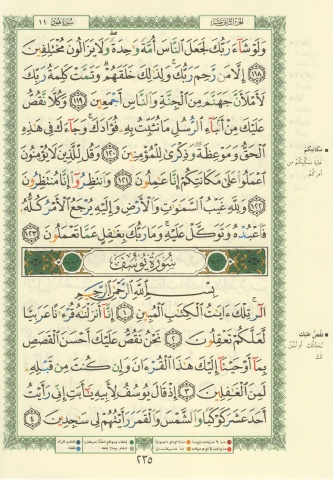 الجزء الثاني عشر
سورة هود ١١
وَلَوْ شَآءَ رَبُّكَ لَجَعَلَ ٱلنَّاسَ أُمَّةً وَٰحِدَةً وَلَا يَزَالُونَ مُخْتَلِفِينَ
﴿١١٨﴾ إِلَّا مَن رَّحِمَ رَبُّكَ وَلِذَٰلِكَ خَلَقَهُمْ وَتَمَّتْ كَلِمَةُ رَبِّكَ
لَأَمْلَأَنَّ جَهَنَّمَ مِنَ ٱلْجِنَّةِ وَٱلنَّاسِ أَجْمَعِينَ ﴿١١٩﴾ وَكُلًّا نَّقُصُّ
عَلَيْكَ مِنْ أَنۢبَآءِ ٱلرُّسُلِ مَا نُثَبِّتُ بِهِۦ فُؤَادَكَ وَجَآءَكَ فِى هَٰذِهِ
ٱلْحَقُّ وَمَوْعِظَةٌ وَذِكْرَىٰ لِلْمُؤْمِنِينَ ﴿١٢٠﴾ وَقُل لِّلَّذِينَ لَا يُؤْمِنُونَ
ٱعْمَلُوا۟ عَلَىٰ مَكَانَتِكُمْ إِنَّا عَٰمِلُونَ ﴿١٢١﴾ وَٱنتَظِرُوٓا۟ إِنَّا مُنتَظِرُونَ
﴿١٢٢﴾ وَلِلَّهِ غَيْبُ ٱلسَّمَٰوَٰتِ وَٱلْأَرْضِ وَإِلَيْهِ يُرْجَعُ ٱلْأَمْرُ كُلُّهُۥ
فَٱعْبُدْهُ وَتَوَكَّلْ عَلَيْهِ وَمَا رَبُّكَ بِغَٰفِلٍ عَمَّا تَعْمَلُونَ ﴿١٢٣﴾
سُورَةُ يُوسُفَ
بِسْمِ ٱللَّهِ ٱلرَّحْمَٰنِ ٱلرَّحِيمِ
الٓر تِلْكَ ءَايَٰتُ ٱلْكِتَٰبِ ٱلْمُبِينِ ﴿١﴾ إِنَّآ أَنزَلْنَٰهُ قُرْءَٰنًا عَرَبِيًّا
لَّعَلَّكُمْ تَعْقِلُونَ ﴿٢﴾ نَحْنُ نَقُصُّ عَلَيْكَ أَحْسَنَ ٱلْقَصَصِ
بِمَآ أَوْحَيْنَآ إِلَيْكَ هَٰذَا ٱلْقُرْءَانَ وَإِن كُنتَ مِن قَبْلِهِۦ
لَمِنَ ٱلْغَٰفِلِينَ ﴿٣﴾ إِذْ قَالَ يُوسُفُ لِأَبِيهِ يَٰٓأَبَتِ إِنِّى رَأَيْتُ
أَحَدَ عَشَرَ كَوْكَبًا وَٱلشَّمْسَ وَٱلْقَمَرَ رَأَيْتُهُمْ لِى سَٰجِدِينَ ﴿٤﴾
مكانتكم
نقص عليك
٢٣٥